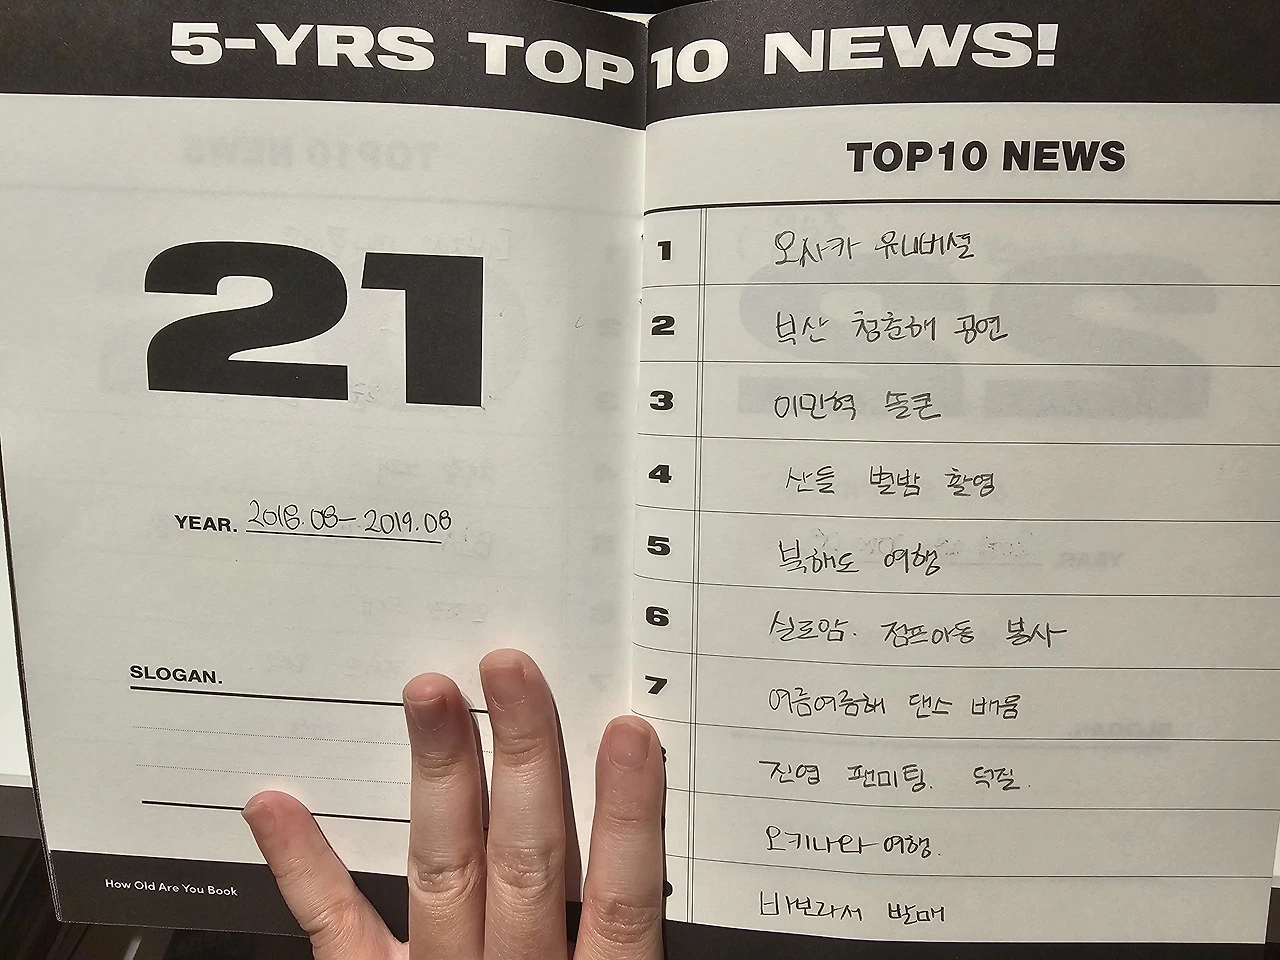 5-YRS TOP 10 NEWS!
21
YEAR. 2018.08- 2019.08
SLOGAN.
How Old Are You Book
TOP10 NEWS
1 오사카 유니버셜
2 부산 청춘해 공연
3 이민혁 똘콘
4 산들 별밤 촬영
5 북해도 여행
6 실로암. 점프아동 봉사
7 여름여름해 댄스 배움
진영 팬미팅. 덕질.
오키나와 여행.
바보라서 발매